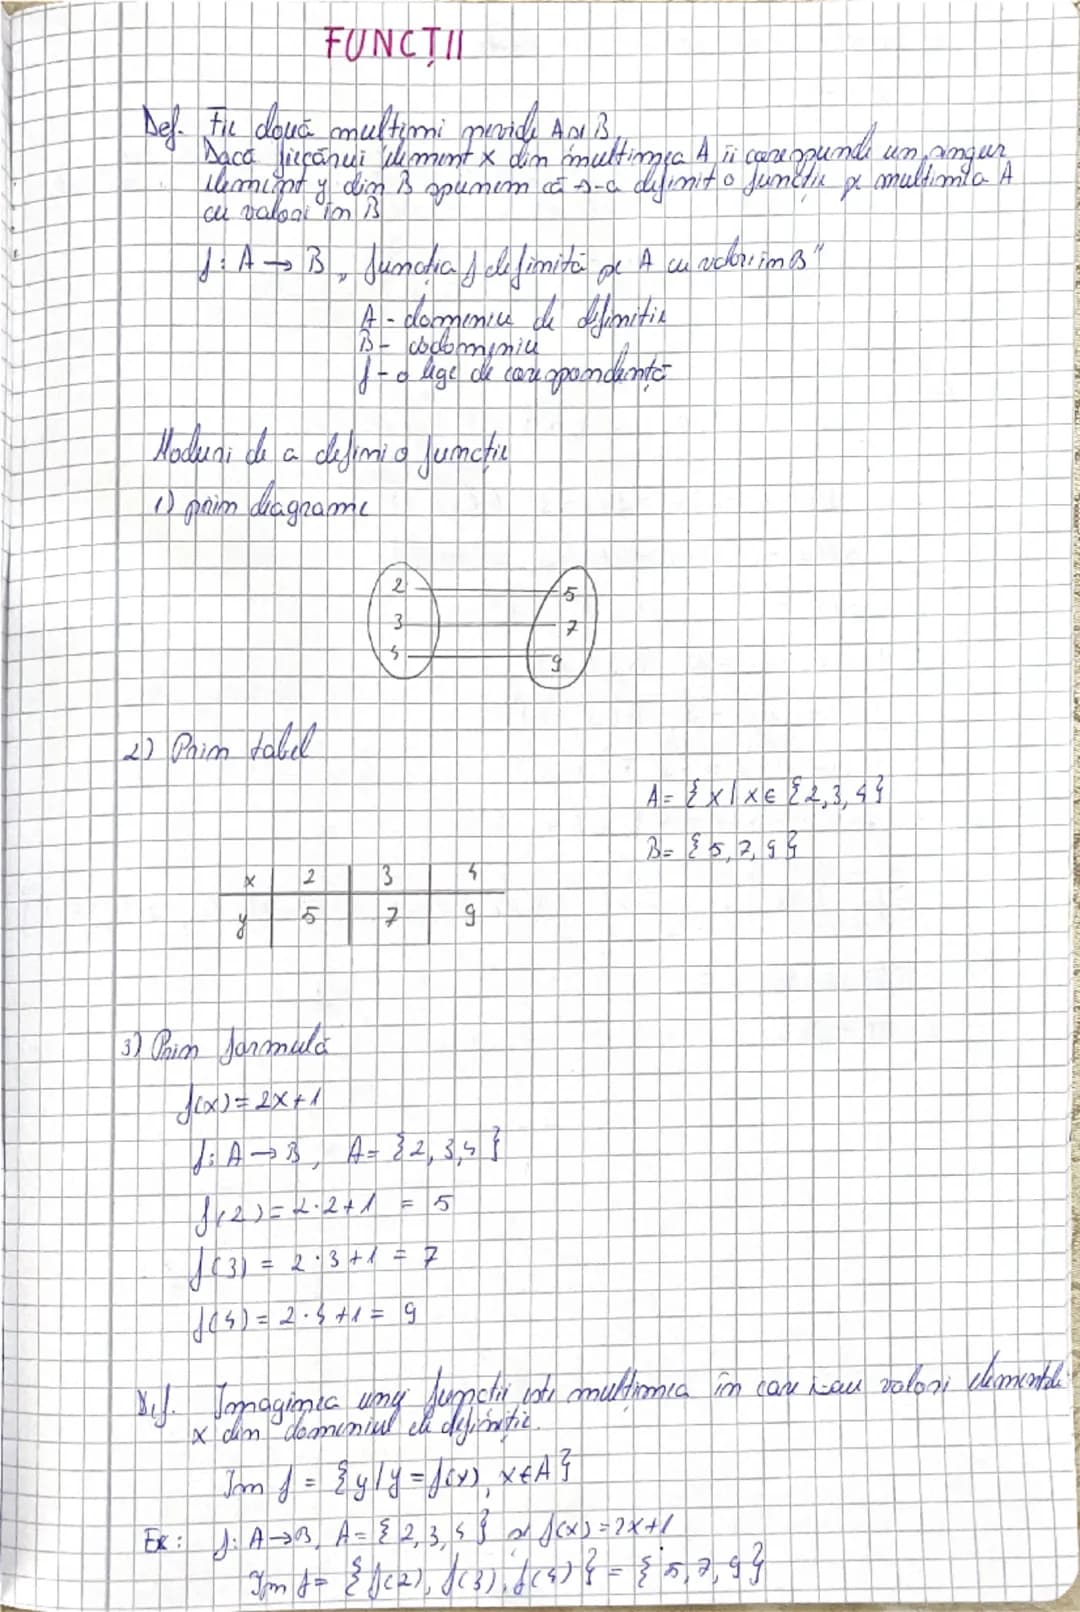 FUNCȚII
Def. Fie două mulțimi nevide A și B.
Dacă fiecărui element x din mulțimea A îi corespunde un singur
element y din B spunem că s-a definit o funcție pe mulțimea A
cu valori în B
f: A → B „funcția f definită pe A cu valori în B"
A - domeniu de definiție
B - codomeniu
f - o lege de corespondență
Moduri de a defini o funcție
1) prin diagrame
2 5
3 7
4 9
2) Prin tabel
A = {x | x ∈ {2,3,4}
B = {5,7,9}
x 2 3 4
y 5 7 9
3) Prin formulă
f(x) = 2x+1
f: A → B, A = {2,3,4}
f(2) = 2·2+1 = 5
f(3) = 2·3+1 = 7
f(4) = 2·4+1 = 9
Def. Imaginea unei funcții este mulțimea în care i-au valori elementele
x din domeniul de definiție.
Im f = {y | y = f(x), x ∈ A}
Ex: f: A → B, A = {2,3,4} și f(x) = 2x+1
Im f = {f(2), f(3), f(4)} = {5,7,9}